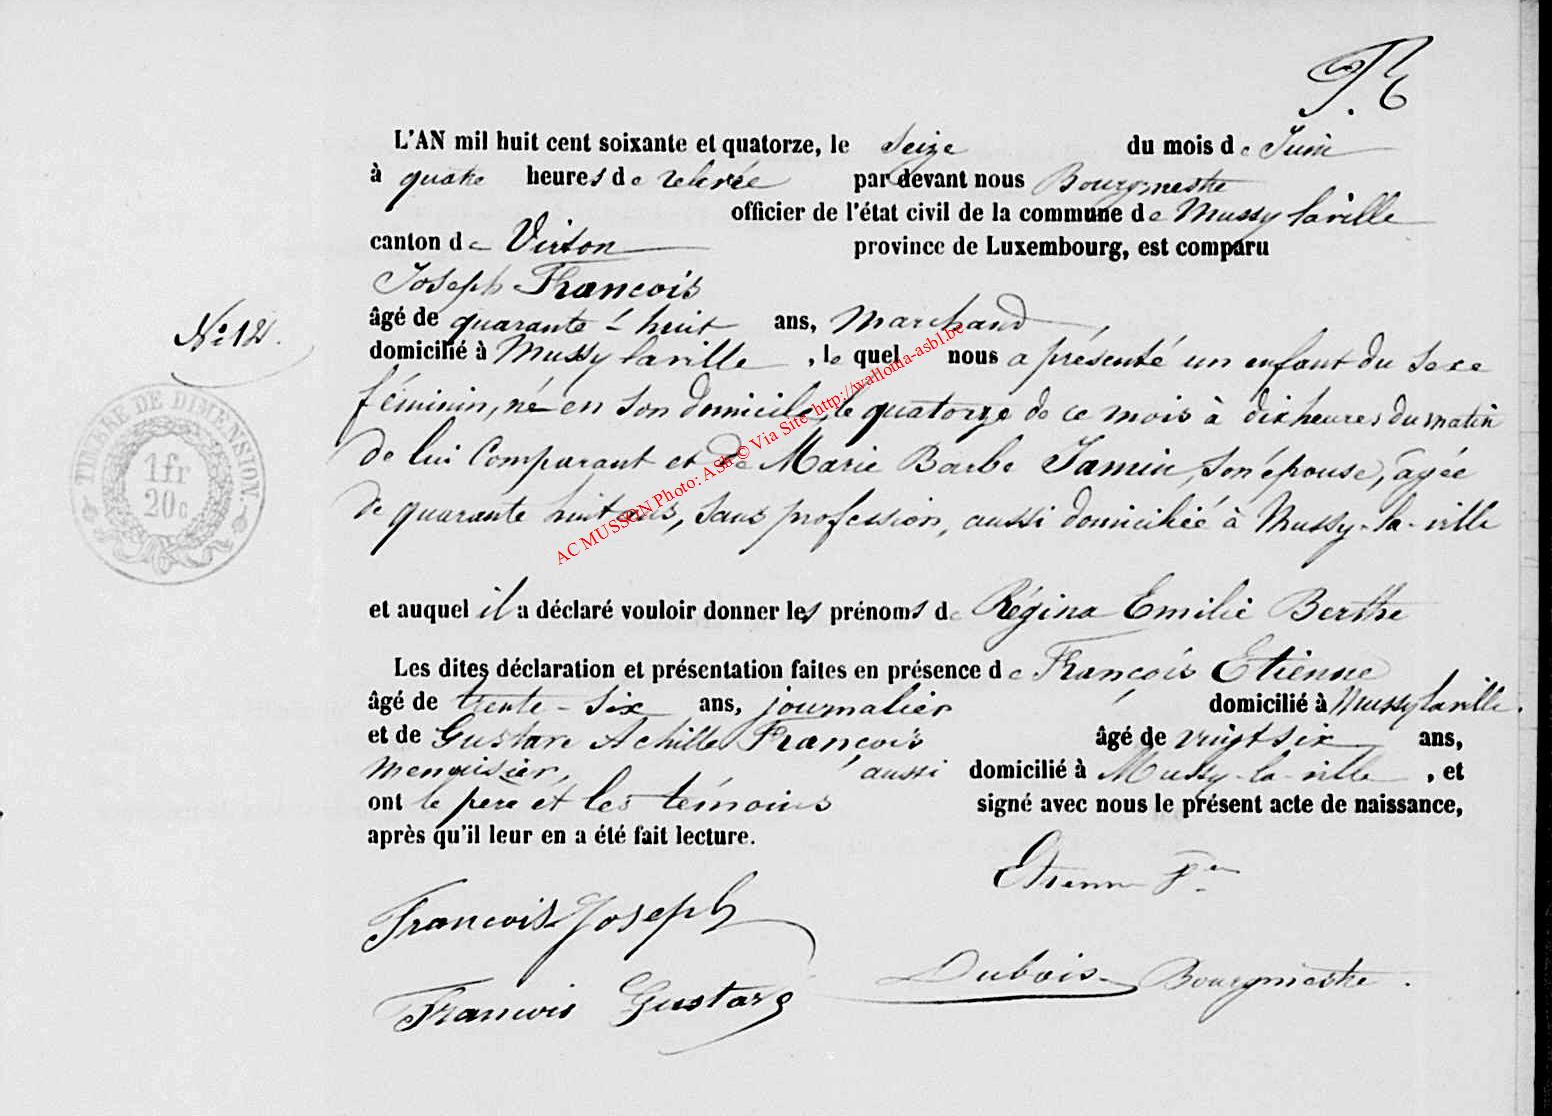 L'AN mil huit cent soixante et quatorze, le Seize du mois de Juin
à quatre heures de relevée par devant nous Bourgmestre
officier de l'état civil de la commune de Mussy laville
canton de Virton province de Luxembourg, est comparu
Joseph François
âgé de quarante-huit ans, Marchand
N° 12.
domicilié à Mussy laville, lequel nous a présenté un enfant du sexe
féminin, né en son domicile, le quatorze de ce mois à dix heures du matin
de lui Comparant et de Marie Barbe Jamin, son épouse, âgée
de quarante huit ans, sans profession, aussi domiciliée à Mussy-la-ville
TIMBRE DE DIMENSION.
1fr
20c
AC MUSSON Photo: ASh © Via Site http://wallonia-asbl.be
et auquel il a déclaré vouloir donner les prénoms de Régina Emilie Berthe
Les dites déclaration et présentation faites en présence de François Etienne
âgé de trente-six ans, journalier domicilié à Mussy laville.
et de Gustave Achille François âgé de vingt six ans,
menuisier, aussi domicilié à Mussy-la-ville, et
ont le père et les témoins signé avec nous le présent acte de naissance,
après qu'il leur en a été fait lecture.
Etienne Fs
François Joseph
Dubois Bourgmestre.
François Gustave